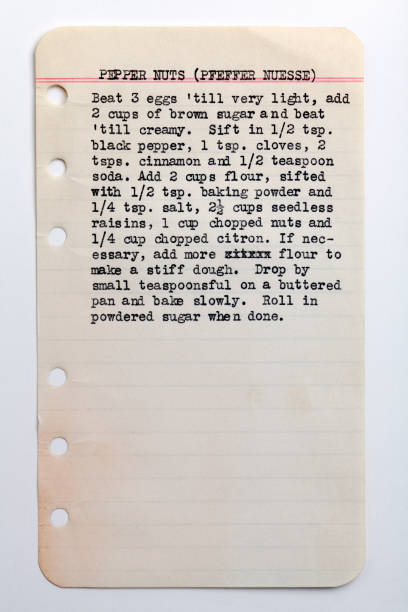 PEPPER NUTS (PFEFFER NUESSE)
Beat 3 eggs 'till very light, add
2 cups of brown sugar and beat
'till creamy. Sift in 1/2 tsp.
black pepper, 1 tsp. cloves, 2
tsps. cinnamon and 1/2 teaspoon
soda. Add 2 cups flour, sifted
with 1/2 tsp. baking powder and
1/4 tsp. salt, 2½ cups seedless
raisins, 1 cup chopped nuts and
1/4 cup chopped citron. If nec-
essary, add more flour to
make a stiff dough. Drop by
small teaspoonsful on a buttered
pan and bake slowly. Roll in
powdered sugar when done.